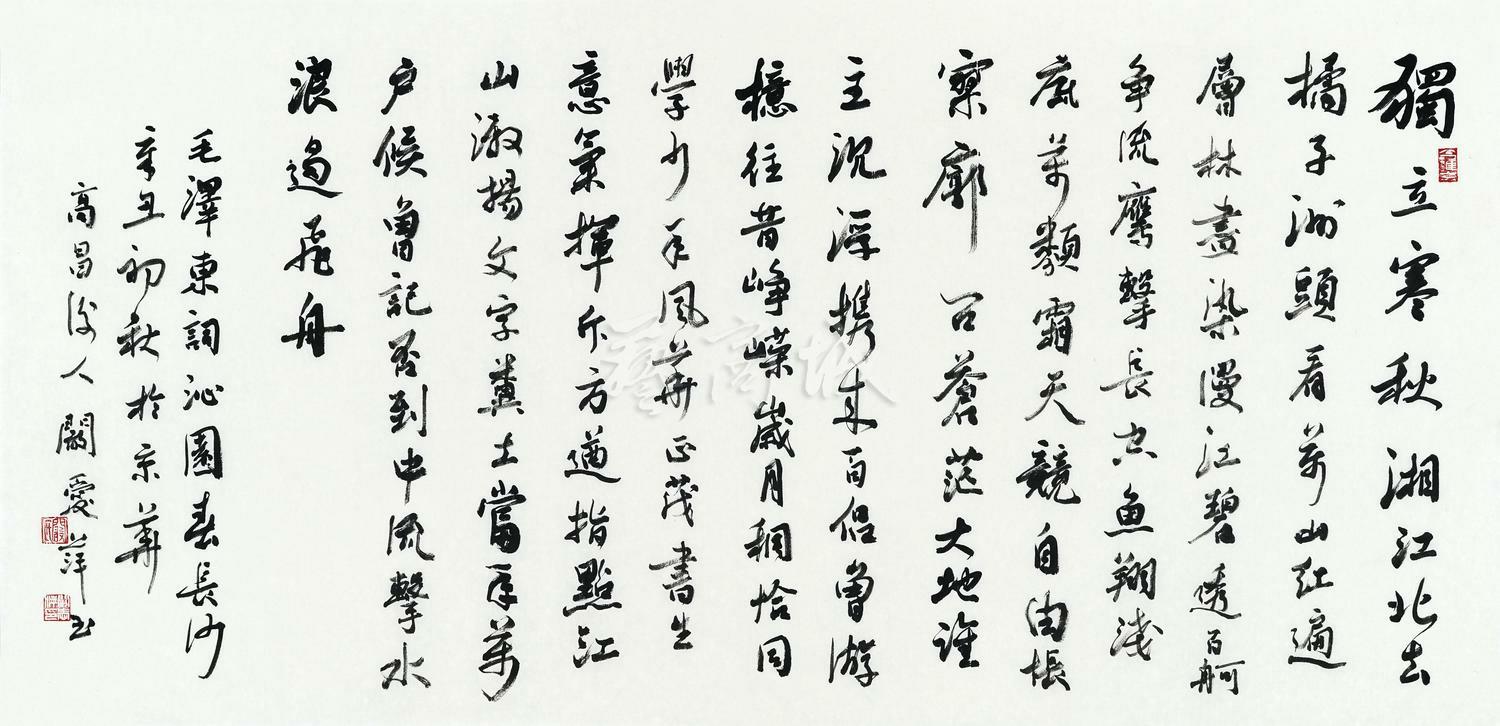 獨立寒秋湘江北去
橘子洲頭看萬山紅遍
層林盡染漫江碧透百舸
爭流鷹擊長空魚翔淺
底萬類霜天競自由悵
寥廓問蒼茫大地誰
主沉浮携來百侣曾游
憶往昔崢嶸歲月稠恰同
學少年風華正茂書生
意氣揮斥方遒指點江
山激揚文字糞土當年萬
户候曾記否到中流擊水
浪遏飛舟
毛澤東詞沁園春長沙
辛丑初秋於京華
高昌後人闞愛萍书